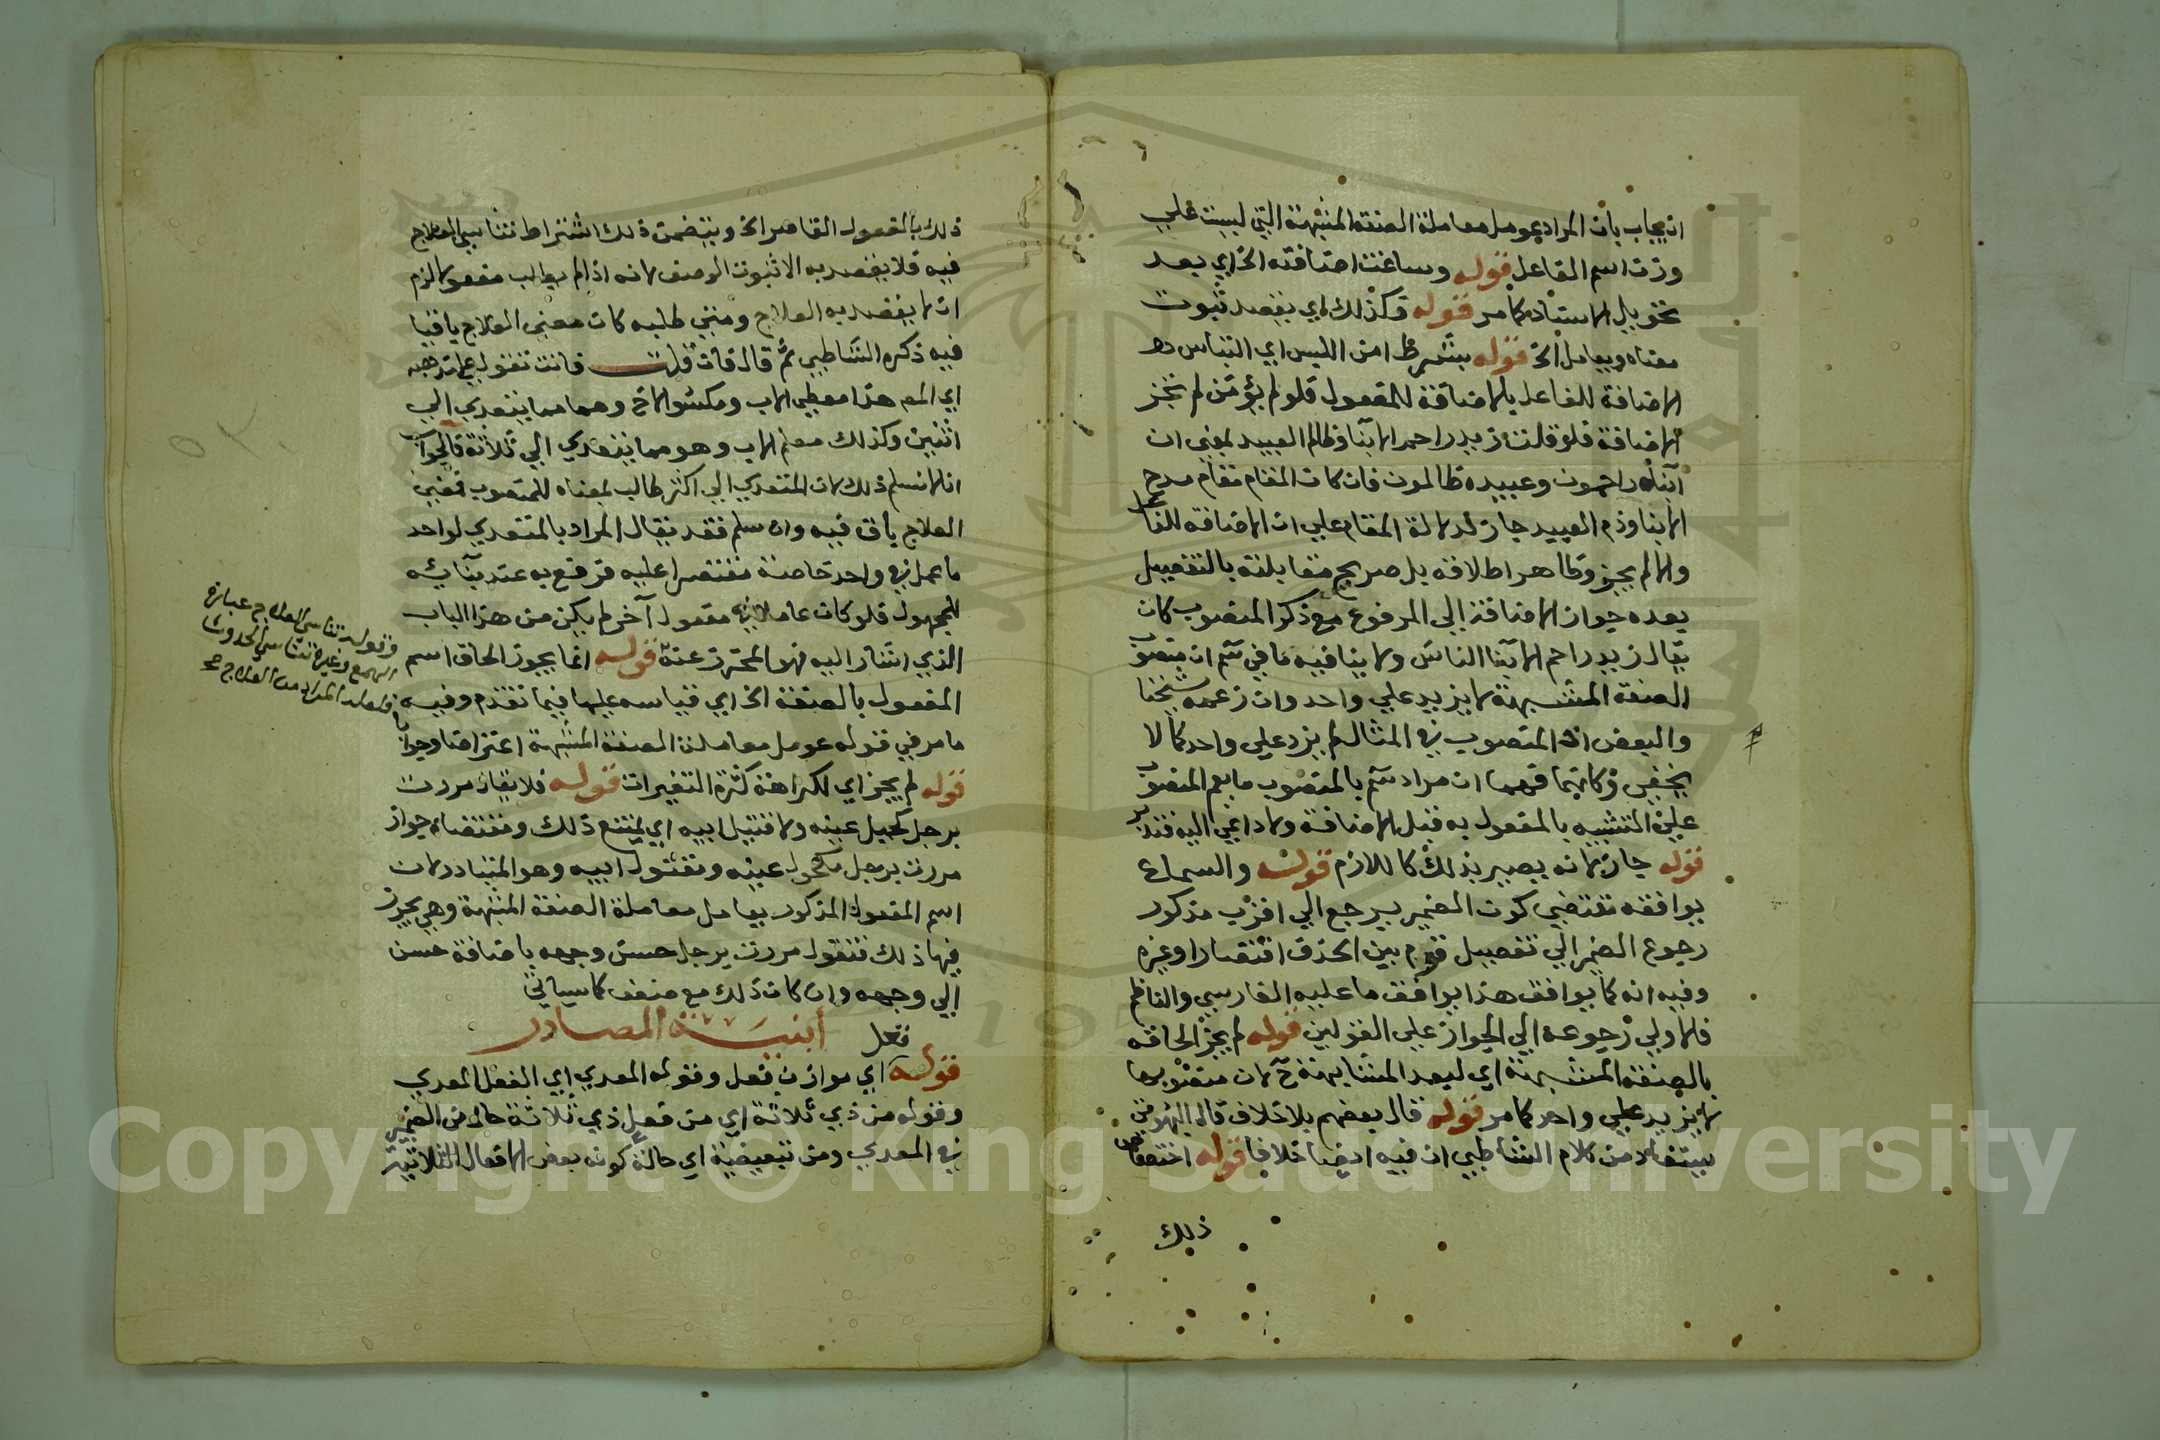 ان يجاب بان المراد عومل معاملة الصفة المشبهة التي ليست على
وزن اسم الفاعل قوله وساغت اضافته الخ اي بعد
تحويل الاسناد كما مر قوله فكذلك اي بقصد ثبوت
معناه ويعامل الخ قوله بشرط امن اللبس اي التباس
الاضافة للفاعل بالاضافة للمفعول فلو لم يؤمن لم تجز
الاضافة فلو قلت زيد راحم الابنا وظالم العبيد بمعنى ان
ابناه راحمون وعبيده ظالمون فان كان المقام مقام مدح
الابنا وذم العبيد جاز لدلالة المقام على ان الاضافة للفاعل
والا لم يجز وظاهر اطلاقه بل صريح مقابلته بالتفصيل
بعده جواز الاضافة الى المرفوع مع ذكر المنصوب كان
يقال زيد راحم الابنا الناس ولا ينافيه ما في سم ان منصوب
الصفة المشبهة لا يزيد على واحد وان زعمه شيخنا
والبعض اذ المنصوب في المثال لم يزد على واحد كما لا
يخفى وكانهما فهما ان مراد سم بالمنصوب ما يعم المنصوب
على التشبيه بالمفعول به قبل الاضافة ولا داعي اليه فتدبر
قوله جاز لانه يصير بذلك كاللازم قوله والسماع
يوافقه تقتضي كون الضمير يرجع الى اقرب مذكور
رجوع الضمير الى تفصيل قوم بين الحذف اقتصارا وغيره
وفيه انه كما يوافق هذا يوافق ما عليه الفارسي والناظم
فالاولى رجوعه الى الجواز على القولين قوله لم يجز الحاقه
بالصفة المشبهة اي لبعد المشابهة ح لان منصوبها
لا يزيد على واحد كما مر قوله قال بعضهم بلا خلاف قاله البهوتي
يستفاد من كلام الشاطبي ان فيه ايضا خلافا قوله اختصاص
ذلك
ذلك بالمفعول القاصر الخ ويتضمن ذلك اشتراط تناسي العلاج
فيه فلا يقصد به الا ثبوت الوصف لانه اذا لم يطلب مفعولا لزم
ان لا يقصد به العلاج ومتى طلبه كان معنى العلاج باقيا
فيه ذكره الشاطبي ثم قال فان قلت فانت تقول على مذهبه
اي المص هذا معطي الاب ومكسو الاخ وهما مما يتعدى الى
اثنين وكذلك معلم الاب وهو مما يتعدى الى ثلاثة فالجواب
انا لا نسلم ذلك لان المتعدي الى اكثر طالب بمعناه للمنصوب فمعنى
العلاج باق فيه وان سلم فقد يقال المراد بالمتعدي لواحد
ما عمل في واحد خاصة مقتصرا عليه فرفع به عند بنائه
للمجهول فلو كان عاملا في مفعول آخر لم يكن من هذا الباب
الذي اشار اليه فهو المحترز عنه قوله انما يجوز الحاق اسم
المفعول بالصفة الخ اي قياسه عليها فيما تقدم وفيه
ما مر في قوله عومل معاملة الصفة المشبهة اعتراضا وجوابا
قوله لم يجز اي لكراهة كثرة التغيرات قوله فلا يقال مررت
برجل كحيل عينه ولا قتيل ابيه اي يمتنع ذلك ومقتضاه جواز
مررت برجل مكحول عينه ومقتول ابيه وهو المتبادر لان
اسم المفعول المذكور يعامل معاملة الصفة المشبهة وهي يجوز
فيها ذلك فتقول مررت برجل حسن وجهه باضافة حسن
الى وجهه وان كان ذلك مع ضعف كما سياتي
أبنية المصادر
قوله فعل اي موازن فعل وقوله المعدى اي الفعل المعدى
وقوله من ذي ثلاثة اي من فعل ذي ثلاثة حال من الضمير
في المعدى ومن تبعيضية اي حالة كونه بعض الافعال الثلاثية
وقوله تناسي العلاج عبارة
الهمع وغيره تناسي الحدوث
فلعله المراد من العلاج
Copyright © King Saud University